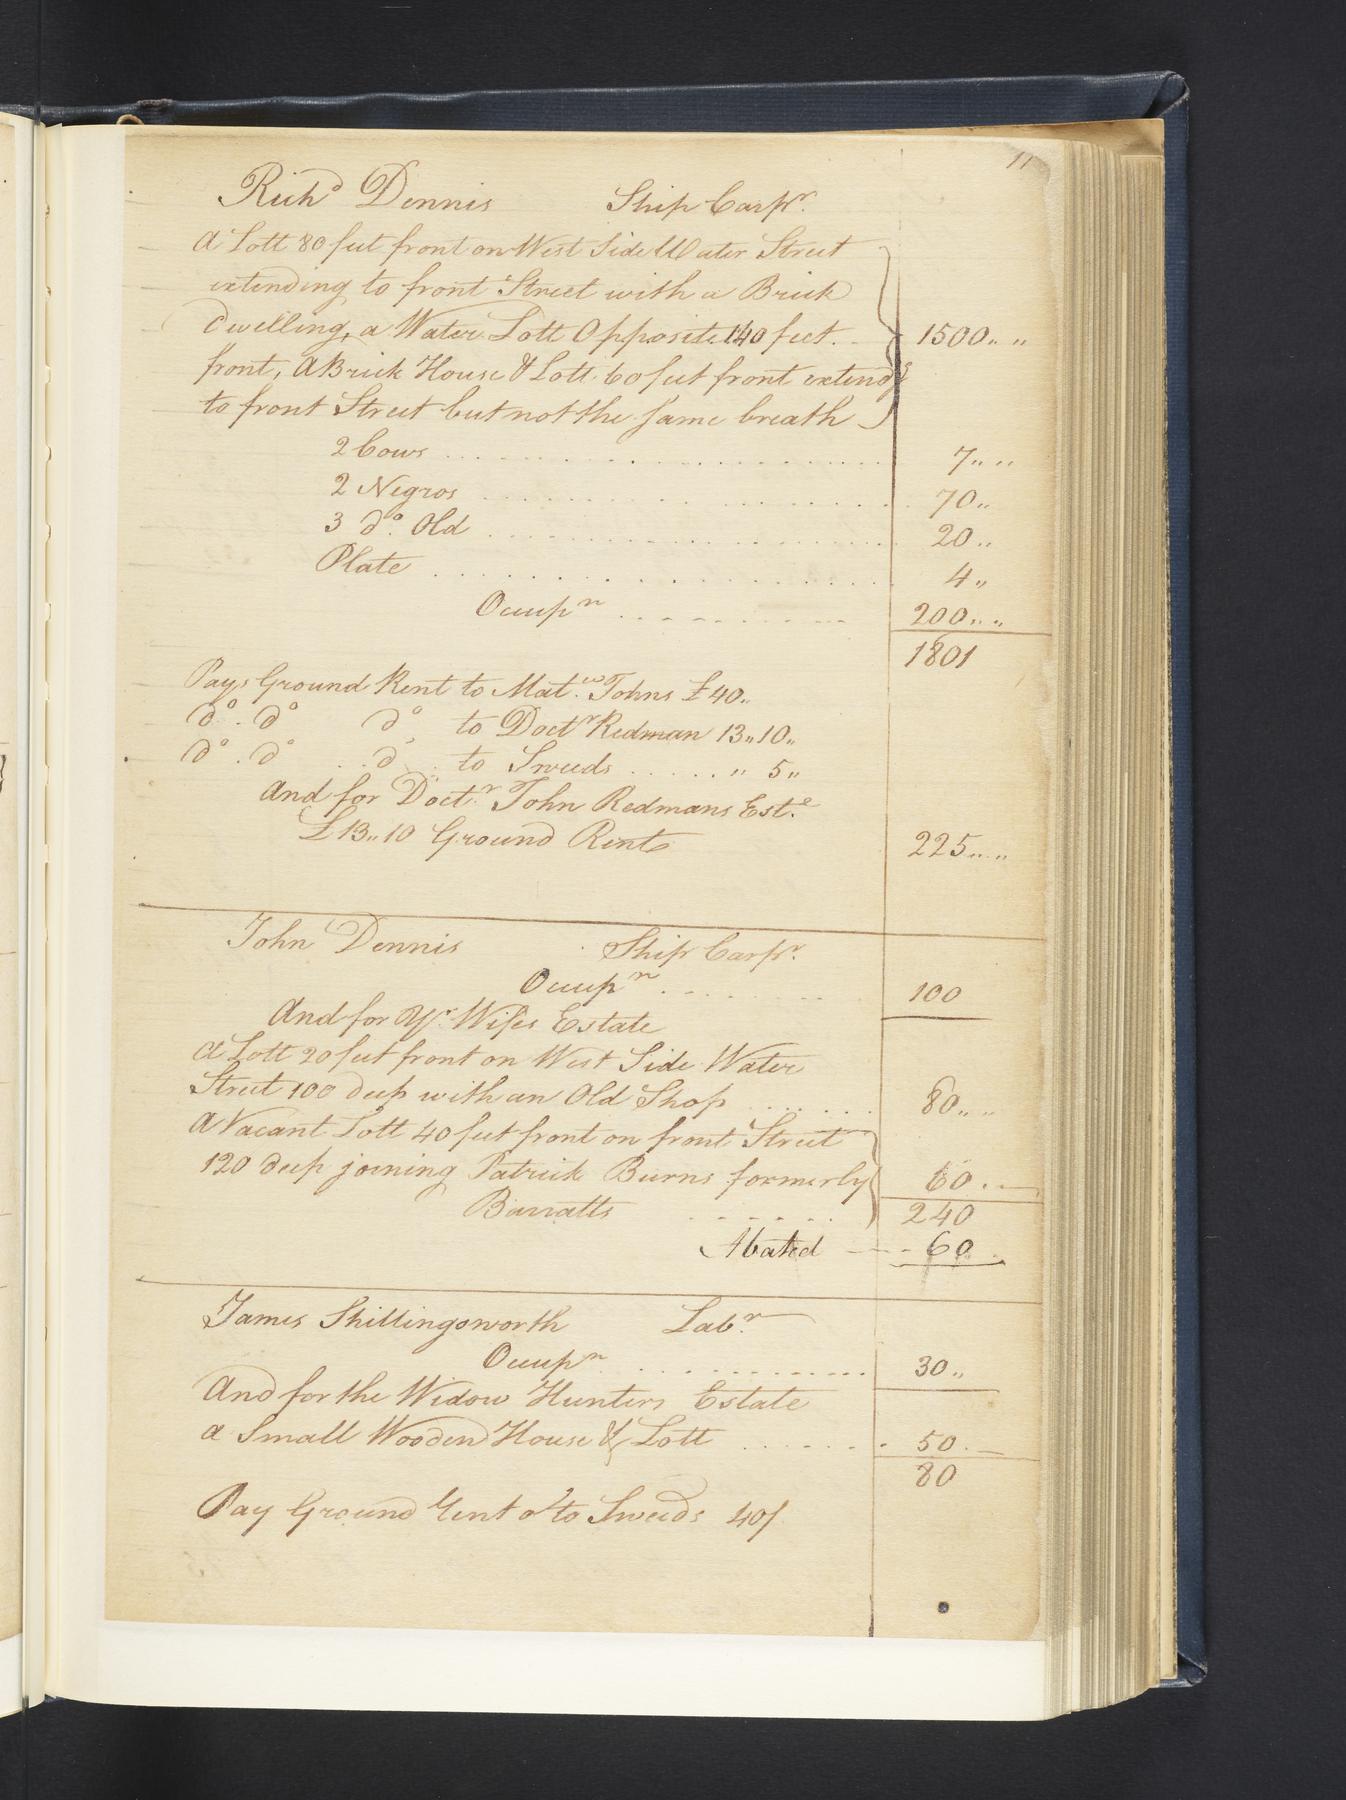 11
Richd Dennis Ship Carpr.
A Lott 80 feet front on West Side Water Street
extending to front Street with a Brick
dwelling, a Water Lott Opposite 140 feet. 1500,, ,,
front, A Brick House & Lott 60 feet front extendg
to front Street but not the Same breath
2 Cows 7,, ,,
2 Negros 70,,
3 do. Old 20,,
Plate 4,,
Occupn 200,, ,,
1801
Pays Ground Rent to Matw. Johns £40,,
do. do do to Doctr Redman 13,,10,,
do. do do to Sweeds ,, 5,,
And for Doctr. John Redmans Este.
£13,,10 Ground Rent 225,, ,,
John Dennis Ship Carpr.
Occupn 100
And for Wifes Estate
A Lott 20 feet front on West Side Water
Street 100 deep with an Old Shop 80,, ,,
A Vacant Lott 40 feet front on front Street
120 deep joining Patrick Burns formerly 60
Barratts 240
Abated 60
James Shillingsworth Labr.
Occupn 30,,
And for the Widow Hunters Estate
a Small Wooden House & Lott 50
80
Pay Ground Rent to Sweeds 40/